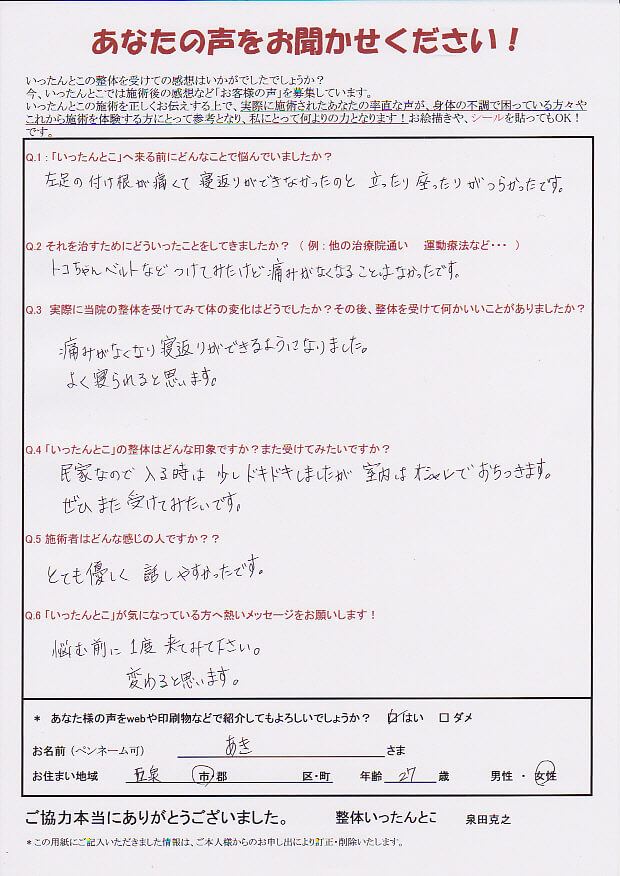 あなたの声をお聞かせください！
いったんとこの整体を受けての感想はいかがでしたでしょうか？
今、いったんとこでは施術後の感想など「お客様の声」を募集しています。
いったんとこの施術を正しくお伝えする上で、実際に施術されたあなたの率直な声が、身体の不調で困っている方々や
これから施術を体験する方にとって参考となり、私にとって何よりの力となります！お絵描きや、シールを貼ってもOK！
です。
Q.1：「いったんとこ」へ来る前にどんなことで悩んでいましたか？
左足の付け根が痛くて寝返りができなかったのと 立ったり座ったりがつらかったです。
Q.2 それを治すためにどういったことをしてきましたか？（ 例：他の治療院通い 運動療法など・・・ ）
トコちゃんベルトなどつけてみたけど痛みがなくなることはなかったです。
Q.3 実際に当院の整体を受けてみて体の変化はどうでしたか？その後、整体を受けて何かいいことがありましたか？
痛みがなくなり寝返りができるようになりました。
よく寝られると思います。
Q.4 「いったんとこ」の整体はどんな印象ですか？また受けてみたいですか？
民家なので 入る時は 少しドキドキしましたが 室内は オシャレで おちつきます。
ぜひ また 受けてみたいです。
Q.5 施術者はどんな感じの人ですか？？
とても優しく 話しやすかったです。
Q.6 「いったんとこ」が気になっている方へ熱いメッセージをお願いします！
悩む前に 1度 来てみて下さい。
変わると思います。
* あなた様の声をwebや印刷物などで紹介してもよろしいでしょうか？ ☑はい □ダメ
お名前（ペンネーム可） あき さま
お住まい地域 五泉 市郡 区・町 年齢 27 歳 男性 ・ 女性
ご協力本当にありがとうございました。 整体いったんとこ 泉田克之
*この用紙にご記入いただきました情報は、ご本人様からのお申し出により訂正・削除いたします。